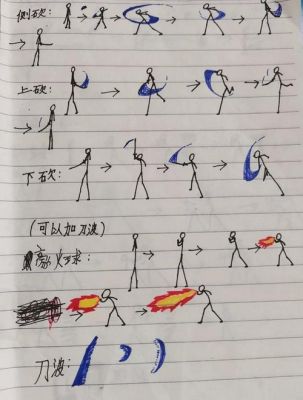 侧砍：
上砍：
下砍：
(可以加刀波)
火球：
刀波：